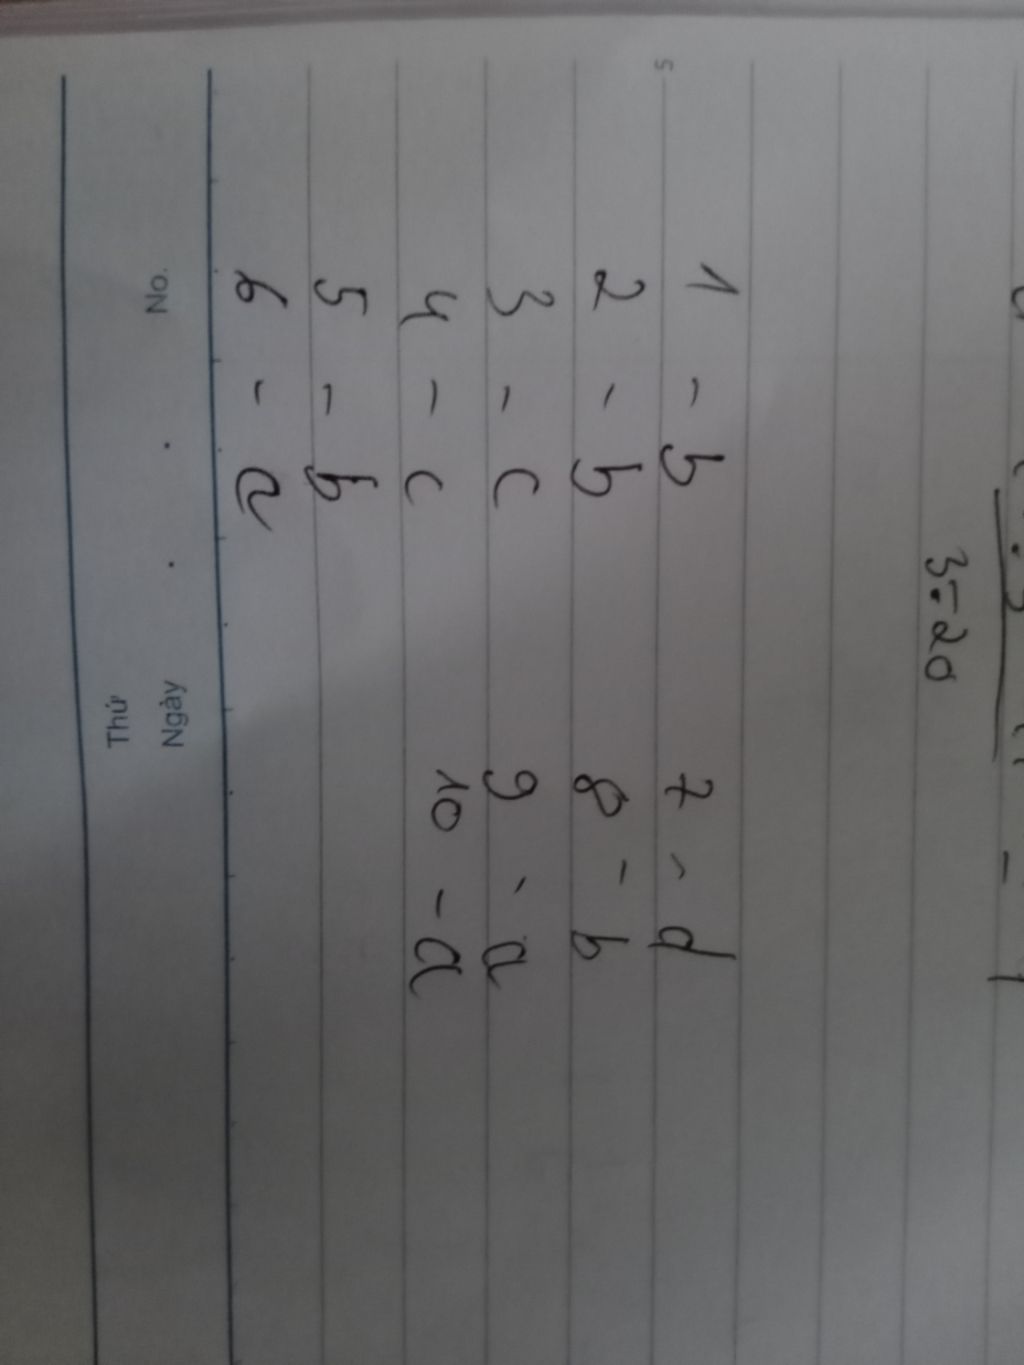 3:-20
1 - b
2 - b
3 - c
4 - c
5 - b
6 - a
7 - d
8 - b
9 - a
10 - a
No.
Ngày
Thứ
5